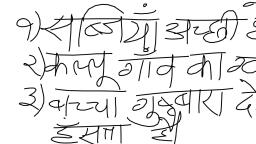 १) सब्जियाँ अच्छी
२) कल्लू गाव का
३) बच्चा गुब्बारा दे
हंसता है